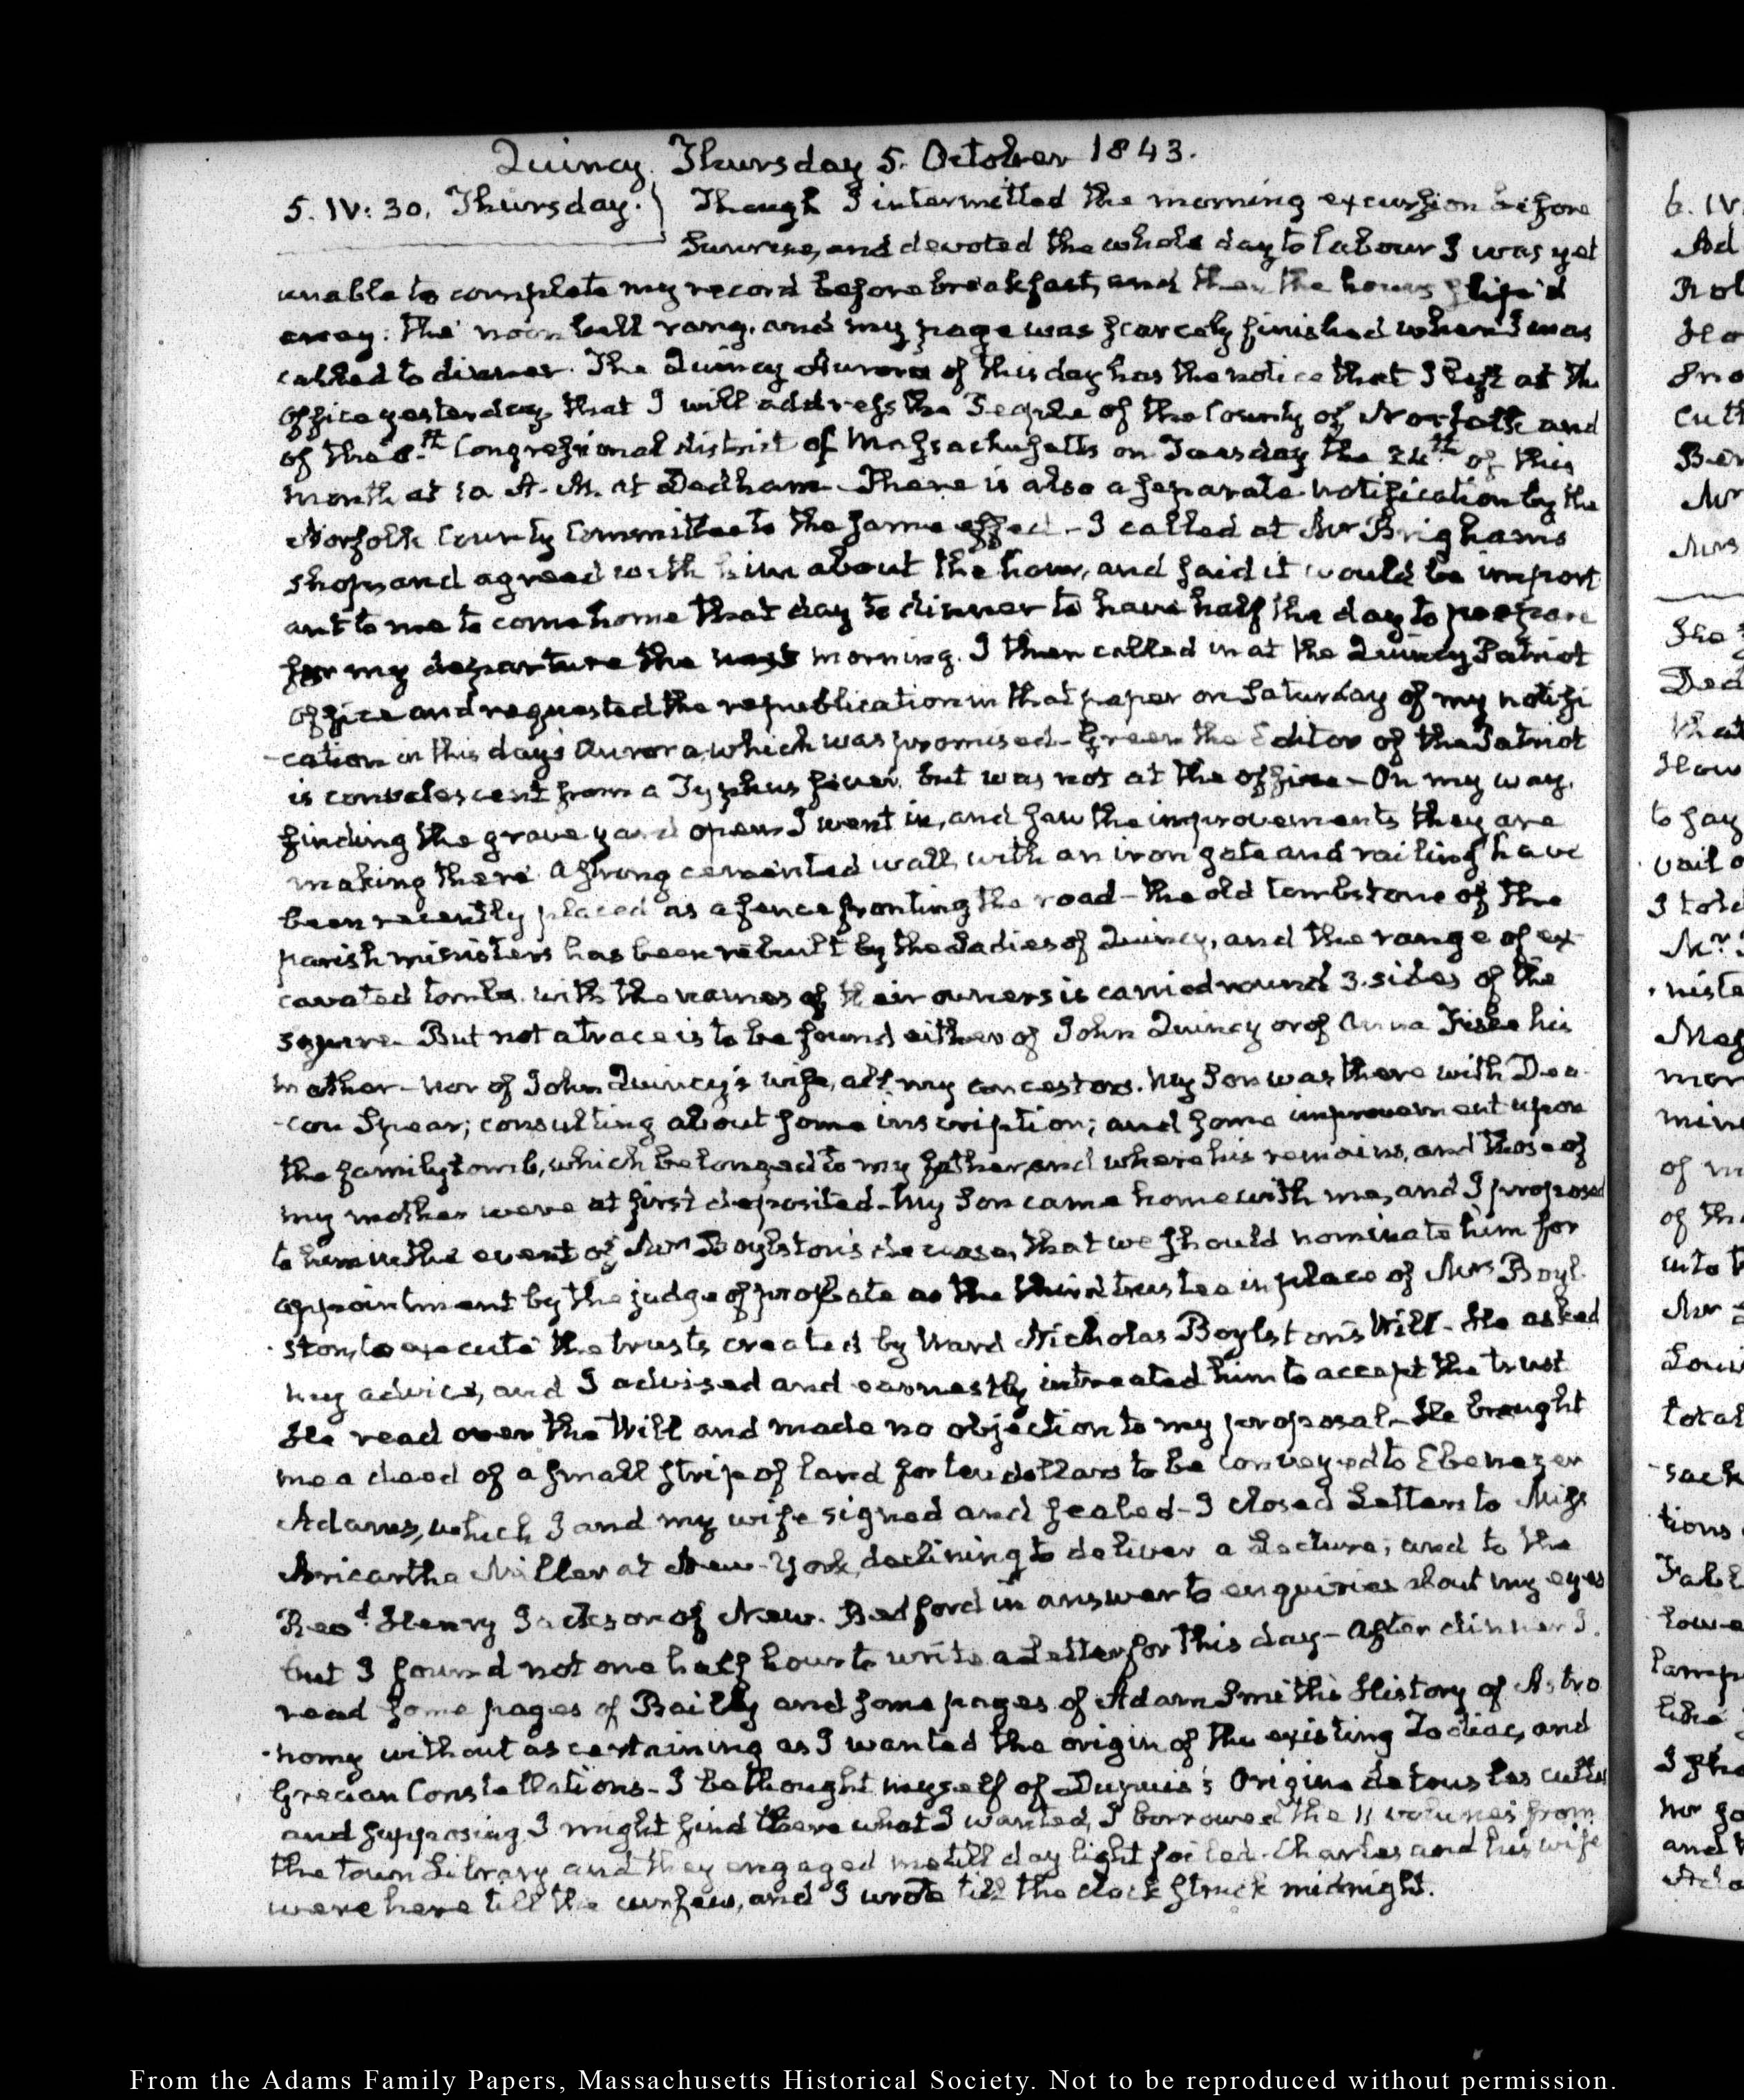 Quincy Thursday 5. October 1843.
5. IV: 30. Thursday. Though I intermitted the morning excursion before
Sunrise, and devoted the whole day to labour I was yet
unable to complete my record before breakfast, and then the hours slip'd
away: the noon bell rang, and my page was scarcely finished when I was
called to dinner. The Quincy Aurora of this day has the notice that I left at the
Office yesterday, that I will address the People of the County of Norfolk and
of the 8.th Congressional district of Massachusetts on Tuesday the 24th of this
month at 10 A. M. at Dedham. There is also a separate notification by the
Norfolk County Committee to the same effect - I called at Mr Brigham's
shop and agreed with him about the hour, and said it would be import
ant to me to come home that day to dinner to have half the day to prepare
for my departure the next morning. I then called in at the Quincy Patriot
office and requested the republication in that paper on Saturday of my notifi
-cation in this day's Aurora, which was promised - Green the Editor of the Patriot
is convalescent from a Typhus fever, but was not at the office - On my way,
finding the grave yard open I went in, and saw the improvements they are
making there. A strong cemented wall, with an iron gate and railing have
been recently placed as a fence fronting the road - the old tombstone of the
parish ministers has been rebuilt by the Ladies of Quincy, and the range of ex-
cavated tombs, with the names of their owners is carried round 3. sides of the
square. But not a trace is to be found either of John Quincy or of Anna Fiske his
mother - nor of John Quincy's wife, all my ancestors. My Son was there with Dea-
-con Spear; consulting about some inscription; and some improvement upon
the family tomb, which belonged to my father, and where his remains, and those of
my mother were at first deposited - My Son came home with me, and I proposed
to him in the event of Mrs Boylston's decease, that we should nominate him for
appointment by the judge of probate as the third trustee in place of Mrs Boyl-
-ston, to execute the trusts created by Ward Nicholas Boylston's Will - He asked
my advice, and I advised and earnestly intreated him to accept the trust
He read over the Will and made no objection to my proposal - He brought
me a deed of a small strip of land for ten dollars to be conveyed to Ebenezer
Adams, which I and my wife signed and sealed - I closed Letters to Miss
Miller at New-York, declining to deliver a Lecture; and to the
Revd Henry Jackson of New-Bedford in answer to enquiries about my eyes
but I found not one half hour to write a Letter for this day - After dinner I.
read some pages of Bailly and some pages of Adam Smith's History of Astro
-nomy without ascertaining as I wanted the origin of the existing Zodiac, and
Grecian Constellations - I bethought myself of Dupuis's Origine de tous les cultes
and supposing I might find there what I wanted, I borrowed the 11 volumes from
the town Library and they engaged me till day light failed. Charles and his wife
were here till the curfew, and I wrote till the clock struck midnight.
From the Adams Family Papers, Massachusetts Historical Society. Not to be reproduced without permission.